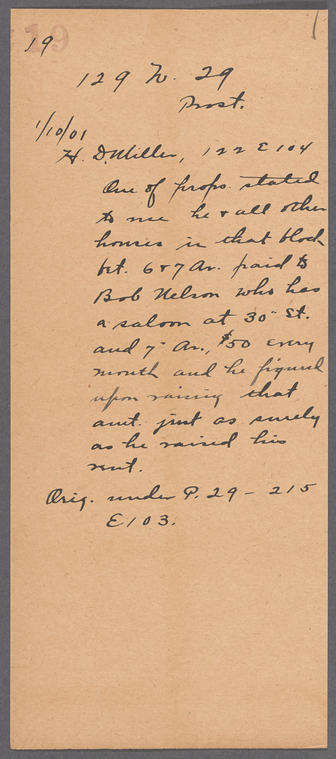 19 19
129 W. 29
Prost.
1/10/01
H. D. Miller, 122 E 104
One of props. stated
to me he & all other
houses in that block
bet. 6 & 7 Av. paid to
Bob Nelson who has
a saloon at 30" St.
and 7" Av., $50 every
month and he figured
upon raising that
amt. just as surely
as he raised his
rent.
Orig. under P. 29 - 215
E 103.